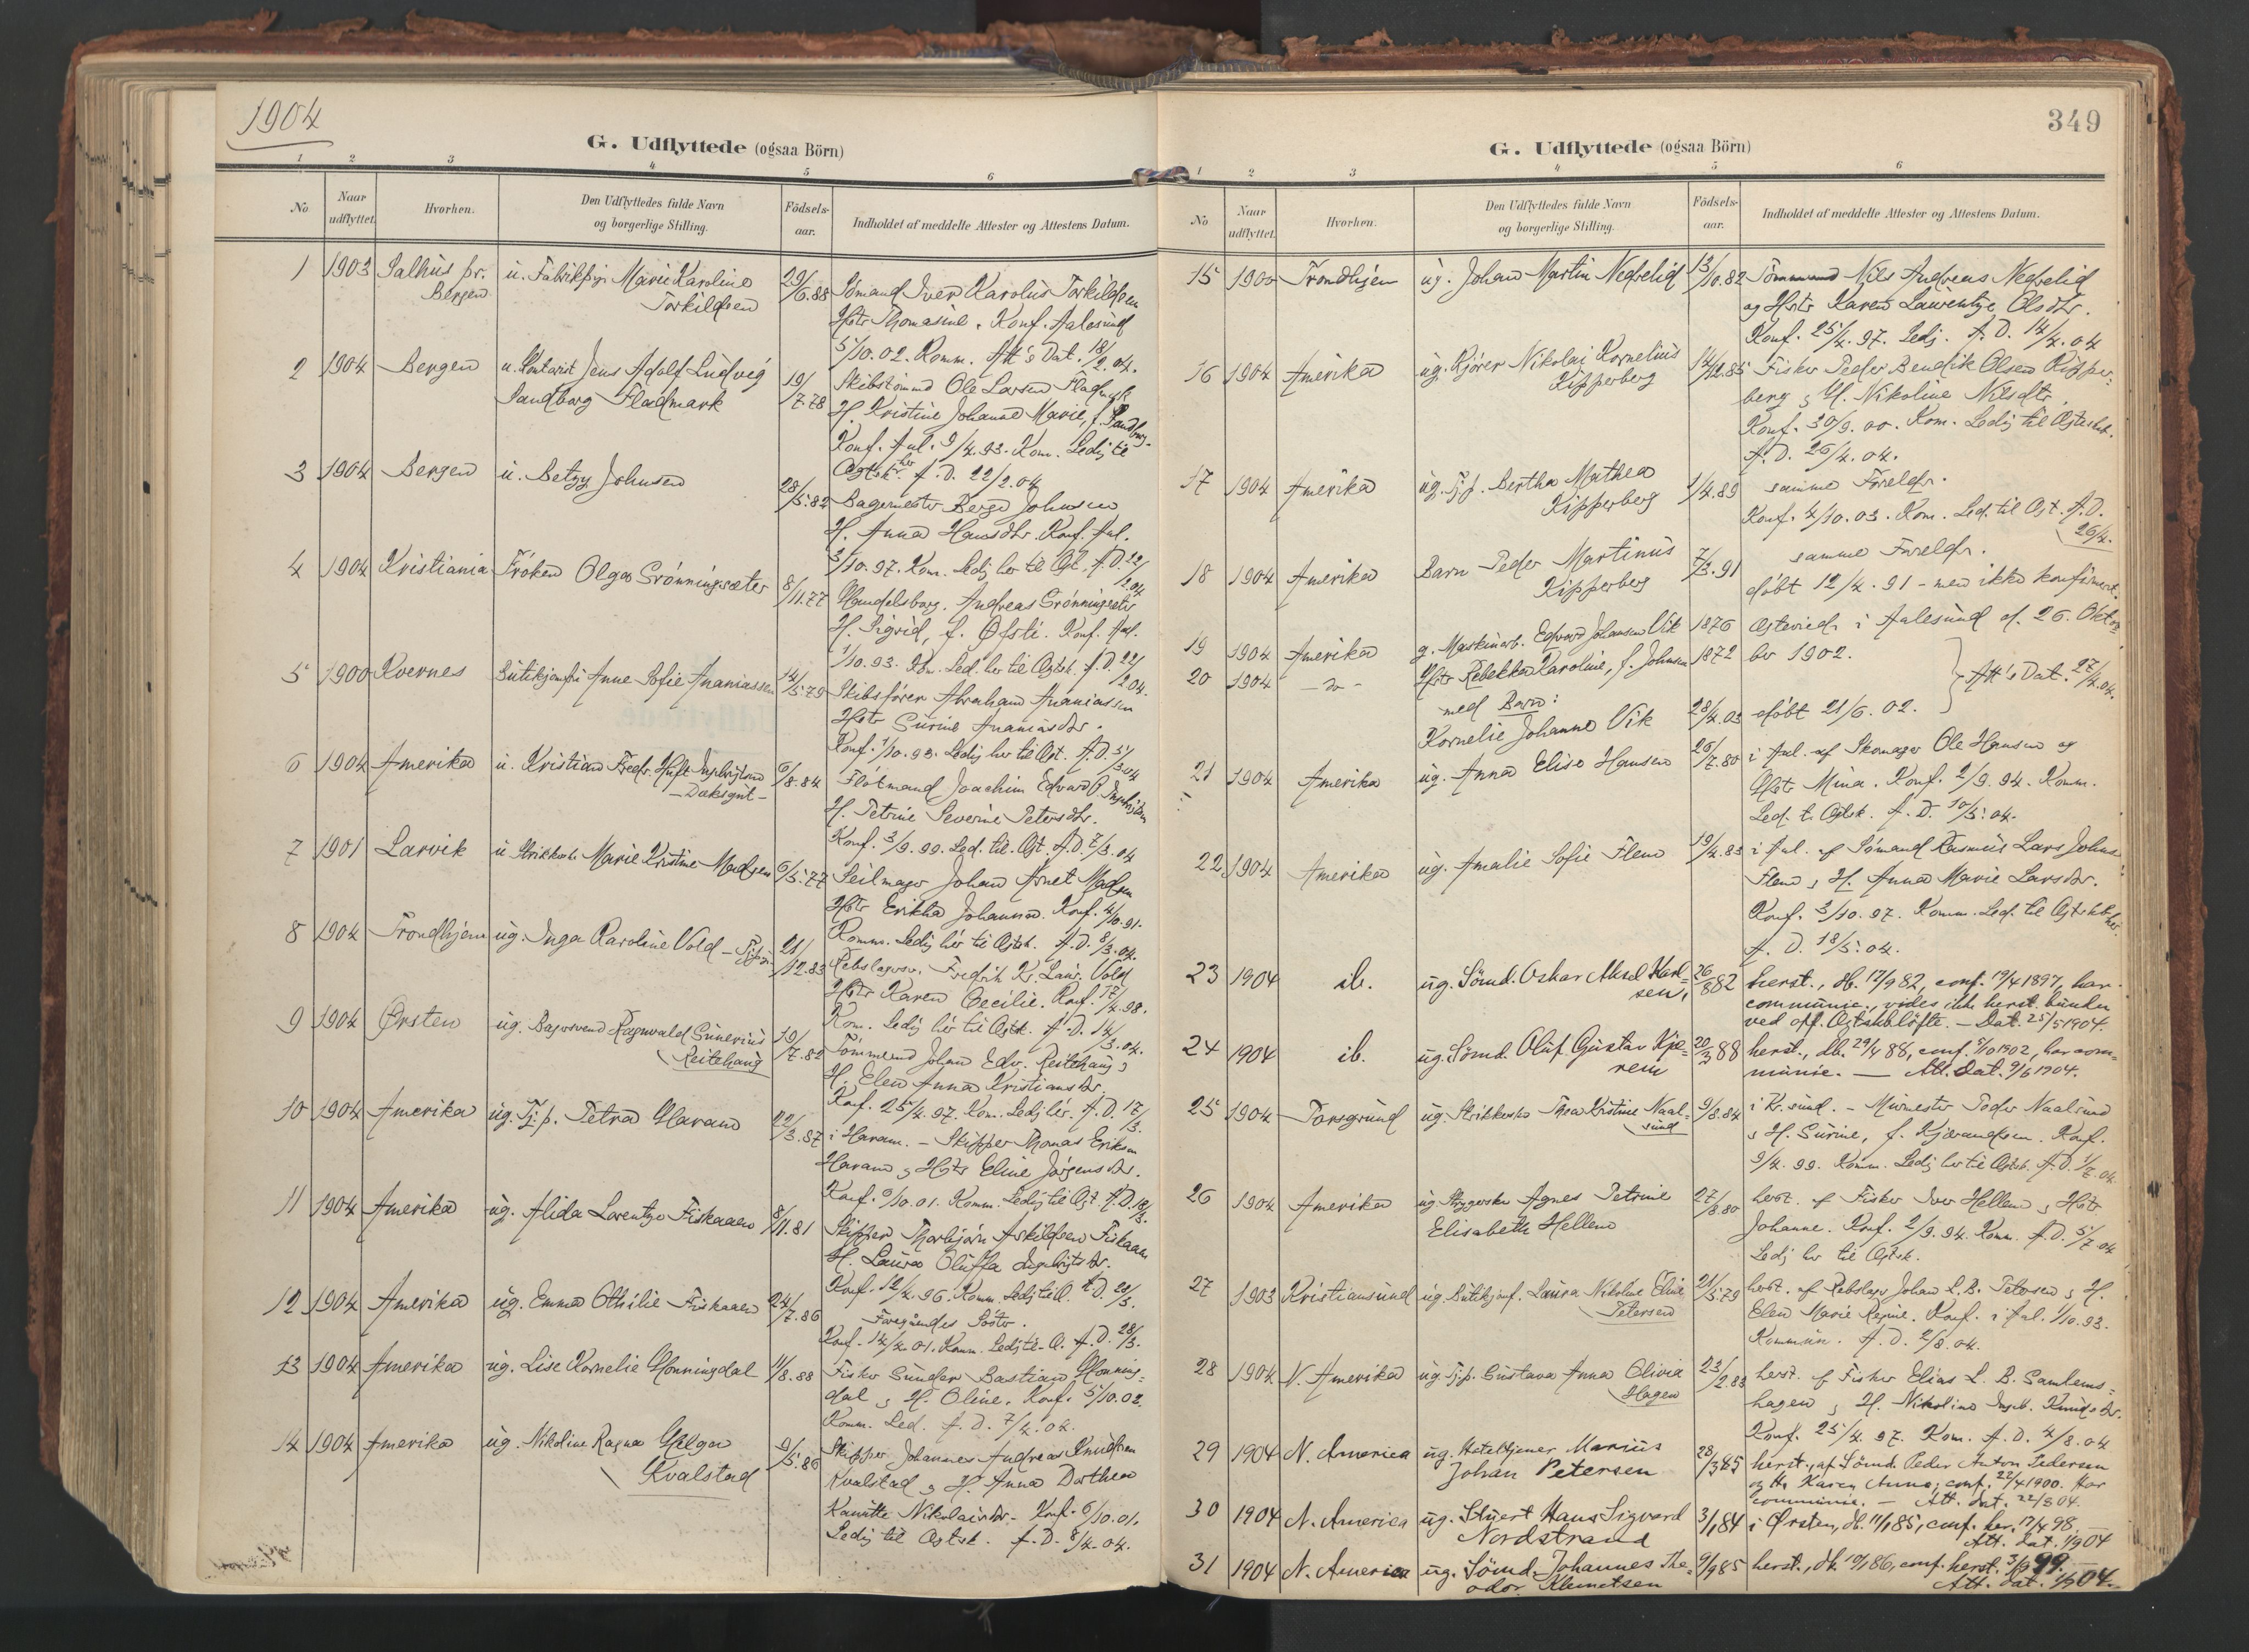 1904
G. Udflyttede (ogsaa Börn)
1 2 3 4 5 6
No
Naar udflyttet.
Hvorhen.
Den Udflyttedes fulde Navn og borgerlige Stilling.
Födsels-aar.
Indholdet af meddelte Attester og Attestens Datum.
1 1903 Salhus pr. u. Marie Karoline 29/6.88 Sömand Iver Karolus Torkildsen
Bergen Torkildsen
Hstr Thomasine. Konf. Aalesund
5/10.02. Komm. Att's Dat. 18/2.04.
2 1904 Bergen u. Kontorist Jens Adolf Ludvig 19/7.78 Ole Larsen Fladmark
Sandborg Fladmark
H. Kristine Johanne Marie, f. Sandborg
Konf. Aal. 9/4.93. Kom. Ledig til
Ægtsk. her A.D. 22/2.04
3 1904 Bergen u. Betzy Johnsen 28/5.82 Bagermester Berge Johnsen
H. Anna Hansdtr. Konf. Aal.
3/10.97. Kom. Ledig her til Ægt. A.D. 22/2.04
4 1904 Kristiania Fröken Olga Grönningsæter 8/11.77 Handelsborg. Andreas Grönningsæter
H. Sigrid, f. Öfsti. Konf. Aal.
1/10.93. Kom. Led. her til Ægtsk. A.D. 22/2.04.
5 1900 Kvernes Butikjomfru Anne Sofie Ananiassen 14/5.79 Skibsförer Abraham Ananiassen
Hstr Surine Ananiasdtr.
Konf. 1/10.93. Ledig her til Ægt. A.D. 5/3.04
6 1904 Amerika u. Kristian Fredr. Ingebrigtsen 6/8.84 Joachim Edvard Ingebrigtsen
– Döksgut –
H. Petrine Severine Petersdtr.
Konf. 3/9.99. Led. til Ægt. A.D. 7/3.04
7 1901 Larvik u. Marie Kristine Madsen 6/5.77 Seilmager Johan Arnet Madsen
Hstr Erikka Johanna. Konf. 4/10.91.
Komm. Ledig her til Ægtsk. A.D. 8/3.04.
8 1904 Trondhjem ug. Inga Karoline Vold 21/12.83 Rebslagersv. Fredrik Kr. Laur. Vold
Hstr Karen Cecilie. Konf. 17/4.98.
Kom. Ledig her til Ægtsk. A.D. 14/3.04.
9 1904 Ørsten ug. Bagersvend Ragnvald Sunerius 19/7.82 Tömmermd Johan Edv. Reitehaug &
Reitehaug
H. Elen Anna Kristiansdtr.
Konf. 25/4.97. Kom. Ledig her. A.D. 17/3.
10 1904 Amerika ug. Tj.p. Petra Haram 22/3.87 i Haram. – Skipper Thomas Eriksen
Haram & Hstr Eline Jörgensdtr.
Konf. 6/10.01. Komm. Ledig til Ægt. A.D. 18/3.
11 1904 Amerika ug. Alida Lorentze Fiskaaen 8/11.81 Skipper Thorbjörn Askildsen Fiskaaen
H. Laura Oluffa Ingebrigtsdtr.
Konf. 12/4.96. Komm. Ledig til Æ. A.D. 28/3.
12 1904 Amerika ug. Emma Othilie Fiskaaen 24/7.86 Foregaaendes Söster.
Konf. 14/4.01. Komm. Ledig til Æ. A.D. 28/3.
13 1904 Amerika ug. Lise Kornelie Honningdal 11/8.88 Fisker Sunder Bastian Honning-
dal & H. Oline. Konf. 5/10.02.
Komm. Led. A.D. 7/4.04.
14 1904 Amerika ug. Nikoline Ragna Helga 9/5.86 Skipper Johannes Andreas Knudsen
Kvalstad
Kvalstad & H. Anna Dorthea
Nikolaisdtr. Konf. 6/10.01.
Ledig til Ægtsk. A.D. 8/4.04.
349
G. Udflyttede (ogsaa Börn)
1 2 3 4 5 6
No
Naar udflyttet.
Hvorhen.
Den Udflyttedes fulde Navn og borgerlige Stilling.
Födsels-aar.
Indholdet af meddelte Attester og Attestens Datum.
15 1900 Trondhjem ug. Johan Martin Nedrelid 13/10.82 Nils Andreas Nedrelid
og Hstr Karen Laurentze Olsdtr.
Konf. 25/4.97. Ledig. A.D. 14/4.04
16 1904 Amerika ug. Kjörer Nikolai Kornelius 14/12.85 Fisker Peder Bendik Olsen Kipper-
Kipperberg
berg & H. Nikoline Nilsdtr.
Konf. 30/9.00. Kom. Ledig til Ægteskab.
A.D. 26/4.04.
17 1904 Amerika ug. Tj.p. Bertha Mathea 1/4.89 samme Foreldr.
Kipperberg
Konf. 4/10.03. Kom. Led. til Ægt. A.D. 26/4.
18 1904 Amerika Barn Peder Martinus 7/3.91 samme Foreldr.
Kipperberg
döbt 12/4.91 – men ikke konfirmeret.
19 1904 Amerika g. Maskinarb. Edvard Johansen Vik 1876 Ægteviede i Aalesund d. 26. Okto
20 1904 – do – Hstr Rebekka Karoline, f. Johnsen 1872 ber 1902.
Att's Dat. 27/4.04.
med Barn:
Kornelie Johanne Vik 28/4.03 döbt 21/6.02.
21 1904 Amerika ug. Anna Elise Hansen 26/7.80 i Aal. af Skomager Ole Hansen og
Hstr Mina. Konf. 2/9.94. Komm.
Led. t. Ægtsk. A.D. 10/5.04.
22 1904 Amerika ug. Amalie Sofie Flem 19/4.83 i Aal. af Sömand Rasmus Lars Johns.
Flem & H. Anna Marie Larsdtr.
Konf. 3/10.97. Komm. Led. til Ægtskb her.
A.D. 18/5.04.
23 1904 ib. ug. Sömd. Oskar Aksel Karl- 26/8 82 herst., db. 17/9 82, conf. 19/4 1897, har
sen,
communic., vides ikke herst. bunden
ved off. Ægtskblöfte. – Dat. 25/5 1904.
24 1904 ib. ug. Sömd. Oluf Gustav Kje- 20/3 88 herst., db. 29/4 88, conf. 5/10 1902, har com-
rem
munic. – Att. dat. 9/6 1904.
25 1904 Porsgrund ug. Thea Kristine Naal- 9/8.84 i Kr.sund. – Murmester Peder Naalsund
sund
& H. Surine, f. Kjörandsen. Konf.
9/4.99. Komm. Ledig her til Ægtsk. A.D. 1/7.04.
26 1904 Amerika ug. Agnes Petrine 27/8.80 herst. af Fisker Iver Hellem & Hstr
Elisabeth Hellem
Johanne. Konf. 2/9.94. Komm. A.D. 5/7.04
Ledig her til Ægtsk.
27 1903 Kristiansund ug. Butikjomf. Laura Nikoline Eline 21/5.79 herst. af Rebslager Johan L.B. Petersen & H.
Petersen
Elen Marie Regine. Konf. i Aal. 1/10.93.
Kommun. A.D. 2/8.04.
28 1904 N. Amerika ug. Tj.p. Gustava Anna Olivia 23/2.83 herst. af Fisker Elias L. B.
Hagen
hagen & H. Nikoline Ingeb. Knudsdtr.
Konf. 25/4.97. Kom. A.D. 4/8.04
29 1904 N. America ug. Hoteltjener Marius 28/3 85 herst., af Sömd. Peder Anton Pedersen
Johan Petersen
og H. Karen Anna; conf. 22/4 1900. Har
communic. – Att. dat. 22/8 04.
30 1904 N. America ug. Stuert Hans Sigvard 3/1 84 i Ørsten, db. 11/1 85, conf. her. 17/4 98.
Nordstrand
Att. dat. 1/9 04
31 1904 N. America ug. Sömd. Johannes The- 9/9 85 herst., db. 10/1 86, conf. herst. 3/9 99.
odor Klemetsen
Att. dat. 1/9 04.